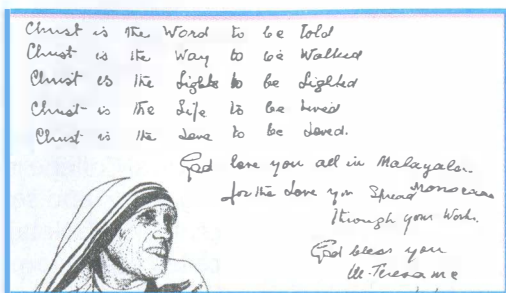 Christ is the Word to be told
Christ is the Way to be Walked
Christ is the Light to be Lighted
Christ is the Life to be Lived
Christ is the Love to be Loved.
God love you all in Malayala
for the Love you Spread
through your Work.
God bless you
M. Teresa mc